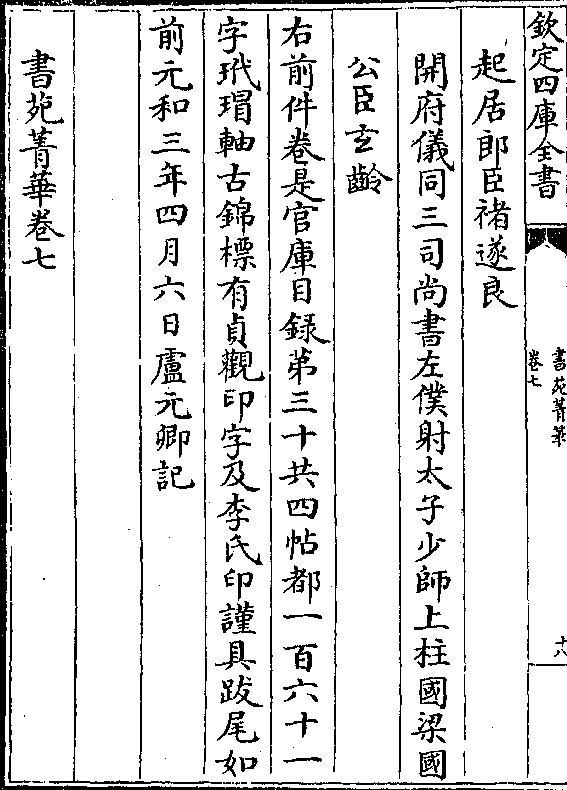 欽定四庫全書
書苑菁華
卷七
十八
起居郎臣禇遂良
開府儀同三司尚書左僕射太子少師上柱國梁國
公臣玄齡
右前件卷是官庫目録第三十共四帖都一百六十一
字玳瑁軸古錦標有貞觀印字及李氏印謹具跋尾如
前元和三年四月六日盧元卿記
書苑菁華卷七